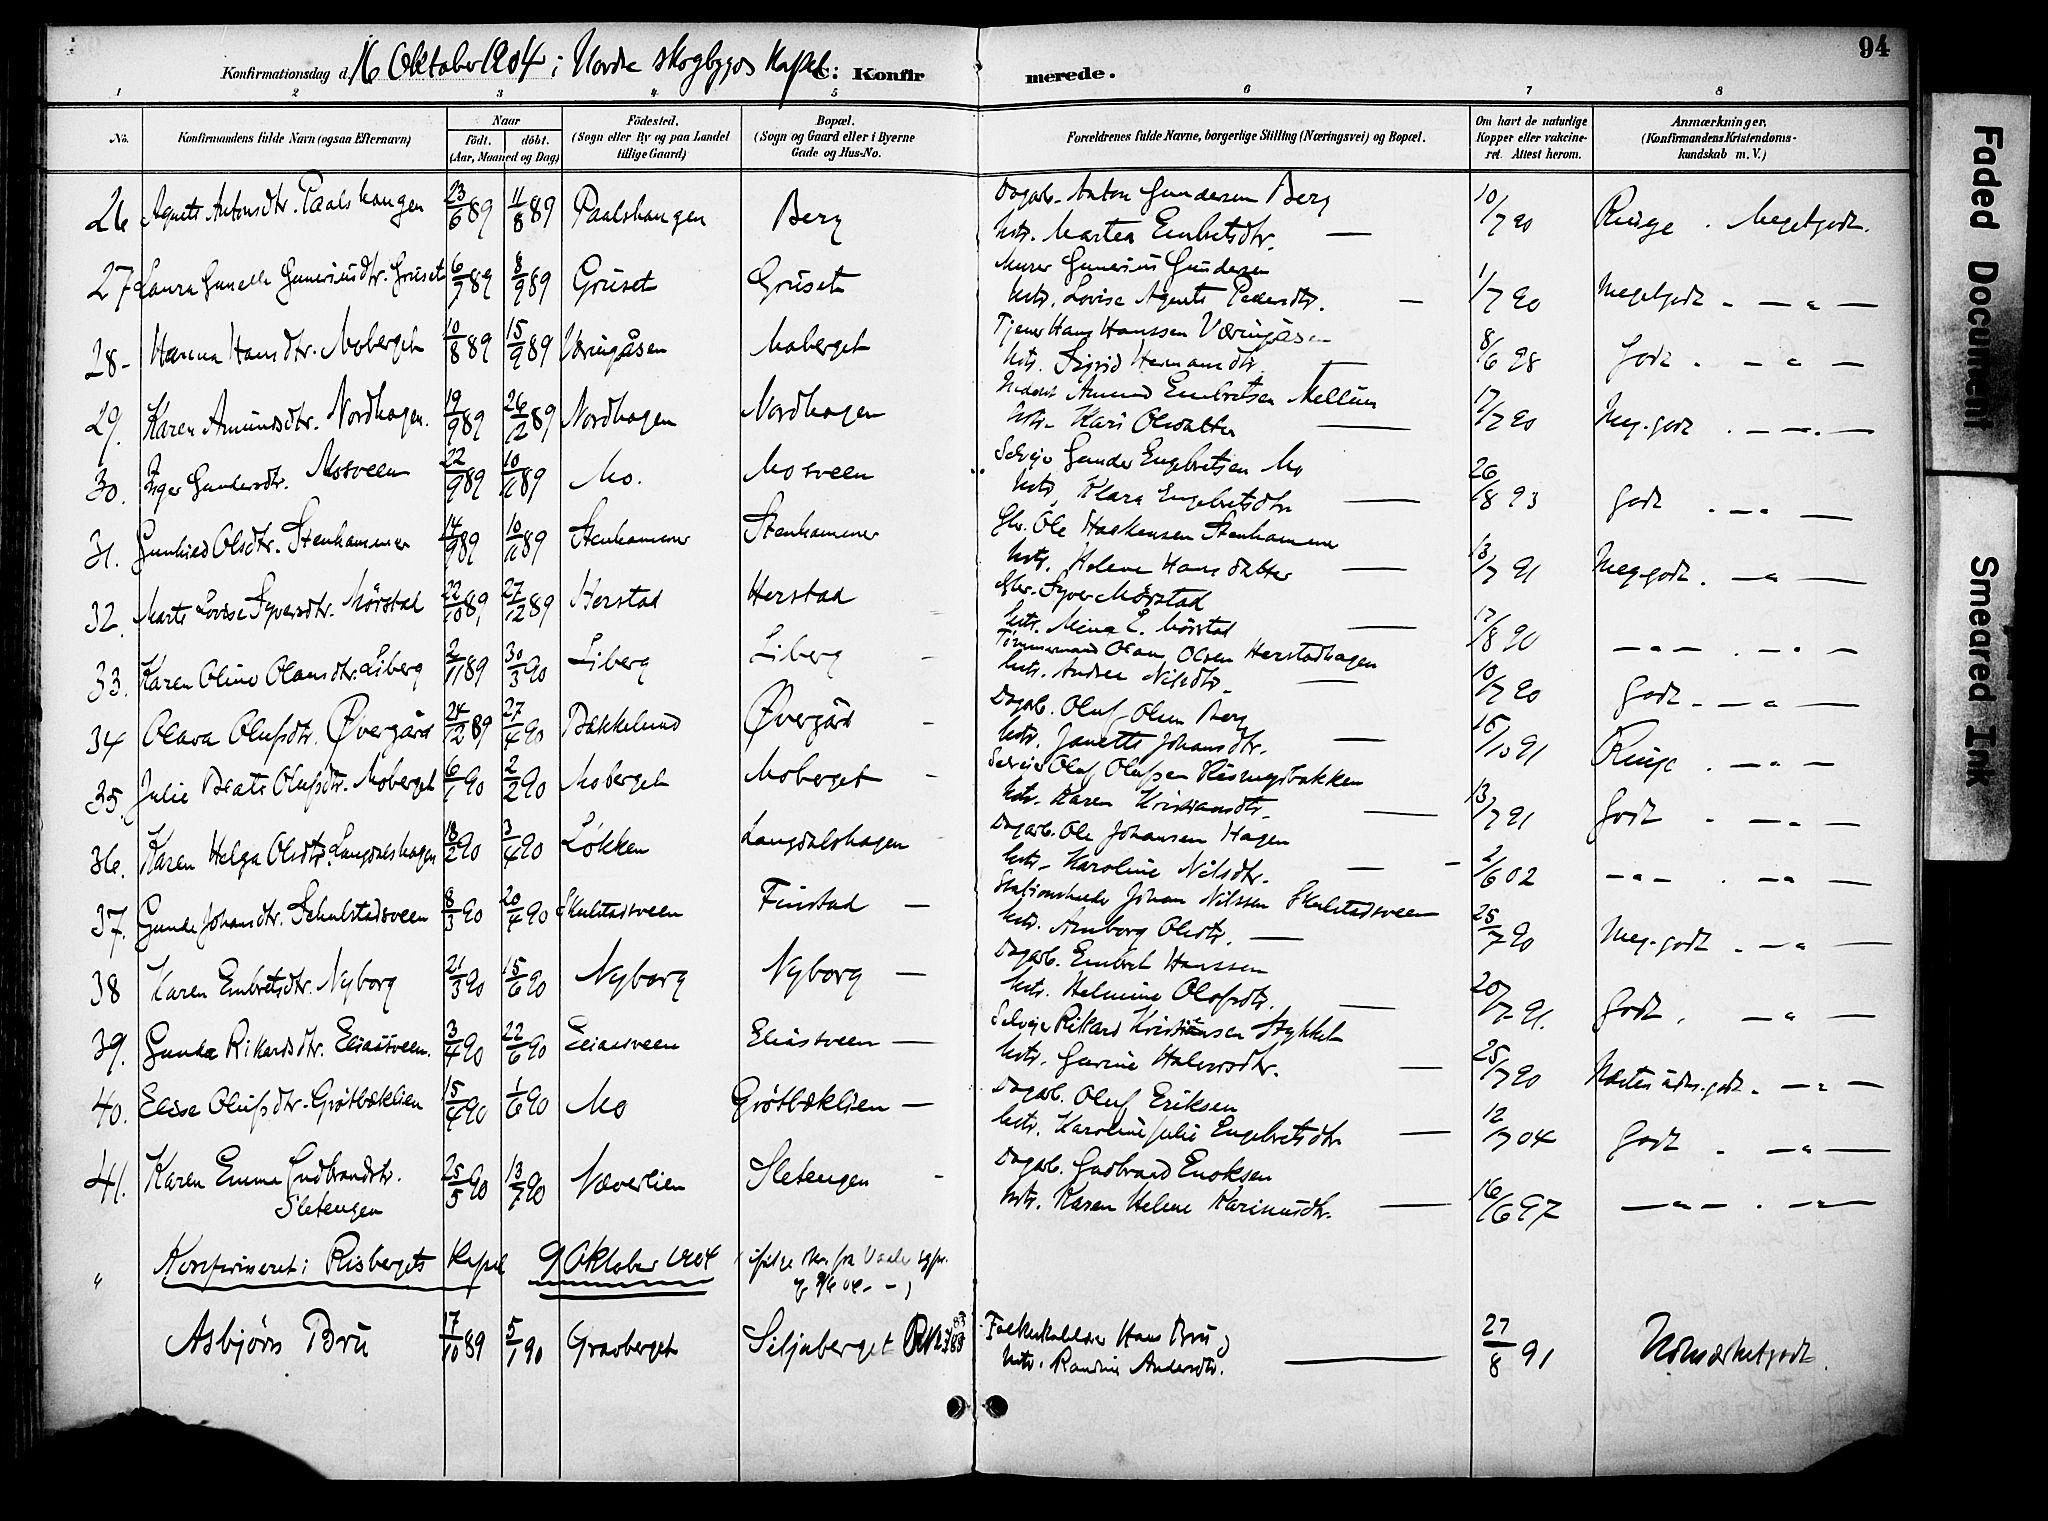 94
Konfirmationsdag d. 16 Oktober 1904 i Nordre skogbygds Kapel C: Konfirmerede.
1 2 3 4 5 6 7 8
No. Konfirmandens fulde Navn (ogsaa Efternavn) Naar Født. døbt. (Aar, Maaned og Dag) Fødested. (Sogn eller By og paa Landet tillige Gaard) Bopæl. (Sogn og Gaard eller i Byerne Gade og Hus-No. Forældrenes fulde Navne, borgerlige Stilling (Næringsvei) og Bopæl. Om havt de naturlige Kopper eller vakcineret. Attest herom. Anmærkninger. (Konfirmandens Kristendomskundskab m. V.)
26 Agnete Antonsdtr. Paalshaugen 23/6 89 11/8 89 Paalshaugen Berg Dagarb. Anton Gundersen Berg
Hstr. Martea Embretsdtr. — 10/7 90 Ringe. Megetgodt.
27 Laura Gunelle Guneriusdtr. Gruset 6/7 89 8/9 89 Gruset Gruset Murer Gunerius Gundersen
Hstr. Lovise Agnete Pedersdtr. — 1/7 90 Megetgodt - — " —
28 - Hanna Hansdtr. Moberget 10/8 89 15/9 89 Væringåsen Moberget Tjener Hans Hanssen Væringåsen
Hstr. Sigrid Hermansdtr. — 8/6 98 Godt . — " —
29. Karen Amundsdtr. Nordhagen. 19/9 89 26/12 89 Nordhagen Nordhagen Amund Embretsen Mellum
Hstr. Kari Olsdatter — 17/7 90 Meg. godt . — " —
30. Inger Gundersdtr. Mosveen 22/9 89 10/11 89 Mo. Mosveen Selveier Gunder Engebretsen Mo
Hstr. Klara Engebretsdtr — 26/8 93 Godt . — " —
31. Gunhild Olsdtr. Stenhammer 14/9 89 10/11 89 Stenhammer Stenhammer Gbr. Ole Haakensen Stenhammer
Hstr. Helene Hansdatter — 13/7 91 Meg. godt. — " —
32. Marte Lovise Syversdtr. Mørstad 22/10 89 27/12 89 Herstad Herstad Gbr. Syver Mørstad
Hstr. Mina E. Mørstad — 17/8 90 — " — . — " —
33. Karen Oline Olausdtr. Liberg 2/11 89 30/3 90 Liberg Liberg Tømmermand Olaus Olsen Herstadhagen
Hstr. Andrea Nilsdtr. — 10/7 90 Godt - — " —
34 Olava Olufsdtr. Øvergård 24/12 89 27/4 90 Bækkelund Øvergård Dagarb. Oluf Olsen Berg
Hstr. Janette Johansdtr. — 15/10 91 Ringe . — " —
35. Julie Beate Olufsdtr. Moberget 6/1 90 2/2 90 Moberget Moberget Selveier Oluf Olufsen
Hstr. Karen Kristiansdtr. — 13/7 91 Godt . — " —
36. Karen Helga Olsdtr. Langdalshagen 18/2 90 3/4 90 Løkken Langdalshagen Dagarb. Ole Johansen Hagen
Hstr. Karoline Nilsdtr. — 2/6 02 — " — . — " —
37. Gunda Johansdtr. Skulstadsveen 8/3 90 20/4 90 Skulstadsveen Finstad — Johan Nilssen Skulstadsveen
Hstr. Arnborg Olsdtr. — 25/7 90 Meg. godt . — " —
38 Karen Embretsdtr. Nyborg 21/3 90 15/6 90 Nyborg Nyborg — Dagarb. Embret Hanssen
Hstr. Helmine Olofsdtr. — 20/7 91. Godt. — " —
39. Gunda Rikardsdtr. Eliasveen. 3/4 90 22/6 90 Eliasveen Eliasveen — Selveier Rikard Kristiansen Stykket
Hstr. Gurine Halvorsdtr. — 25/7 90 Næsten udm. godt . — " —
40. Elise Olufsdtr. Grøtbæklien 15/4 90 1/6 90 Mo Grøtbæklien — Dagarb. Oluf Eriksen
Hstr. Karoline Julie Engebretsdtr. — 12/7 04 Godt . — " —
41. Karen Emma Gudbrandsdtr. Sletengen 25/5 90 13/7 90 Næverlien Sletengen Dagarb. Gudbrand Enoksen
Hstr. Karen Helene Karinusdtr. — 16/6 97 — " — . — " —
" Konfirmeret i Risbergets Kapel 9 Oktober 1904
Asbjørn Bru 17/10 89 5/1 90 Gravberget Siljuberget Hans Bru
Hstr. Randine Andersdtr. — 27/8 91 Udmærketgodt.
Faded Document
Smeared Ink